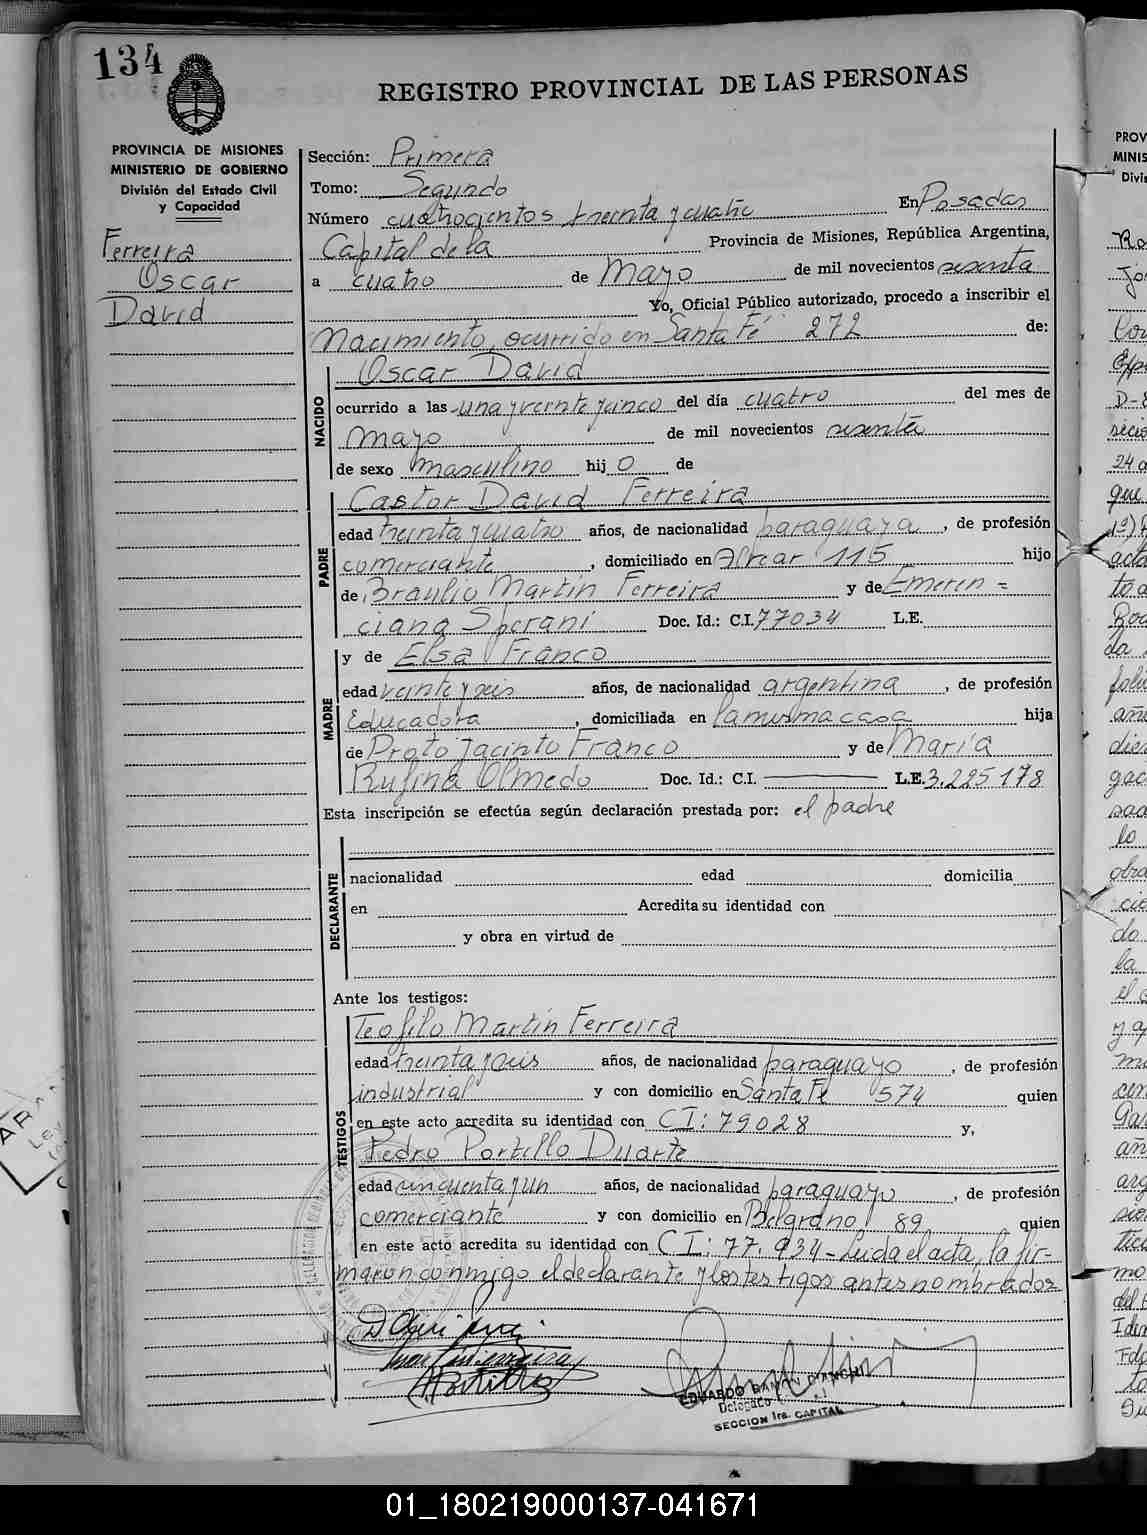 134
REGISTRO PROVINCIAL DE LAS PERSONAS
PROVINCIA DE MISIONES
MINISTERIO DE GOBIERNO
División del Estado Civil
y Capacidad
Ferreira
Oscar
David
Sección: Primera
Tomo: Segundo
Número cuatrocientos treinta y cuatro En Posadas
Capital de la Provincia de Misiones, República Argentina,
a cuatro de Mayo de mil novecientos sesenta
Yo, Oficial Público autorizado, procedo a inscribir el
Nacimiento, ocurrido en Santa Fé 272 de:
NACIDO
Oscar David
ocurrido a las una y veinte y cinco del día cuatro del mes de
mayo de mil novecientos sesenta
de sexo masculino hijo de
PADRE
Castor David Ferreira
edad treinta y cuatro años, de nacionalidad paraguaya, de profesión
comerciante, domiciliado en Alvear 115 hijo
de Braulio Martín Ferreira y de Emeren=
ciana Sperani Doc. Id.: C.I. 77034 L.E.
MADRE
y de Elsa Franco
edad veinte y seis años, de nacionalidad argentina, de profesión
Educadora, domiciliada en la misma casa hija
de Proto Jacinto Franco y de María
Rufina Olmedo Doc. Id.: C.I. L.E. 3.225178
Esta inscripción se efectúa según declaración prestada por: el padre
DECLARANTE
nacionalidad edad domicilia
en Acredita su identidad con
y obra en virtud de
Ante los testigos:
TESTIGOS
Teofilo Martín Ferreira
edad treinta y seis años, de nacionalidad paraguayo, de profesión
industrial y con domicilio en Santa Fé 574 quien
en este acto acredita su identidad con CI: 79028 y,
Pedro Portillo Duarte
edad cincuenta y un años, de nacionalidad paraguayo, de profesión
comerciante y con domicilio en Belgrano 89 quien
en este acto acredita su identidad con CI: 77.934 - Leida el acta, la fir-
maron conmigo el declarante y los testigos antes nombrados
EDUARDO RAMON BIANCHI
Delegado
SECCION 1ra. CAPITAL
01_180219000137-041671